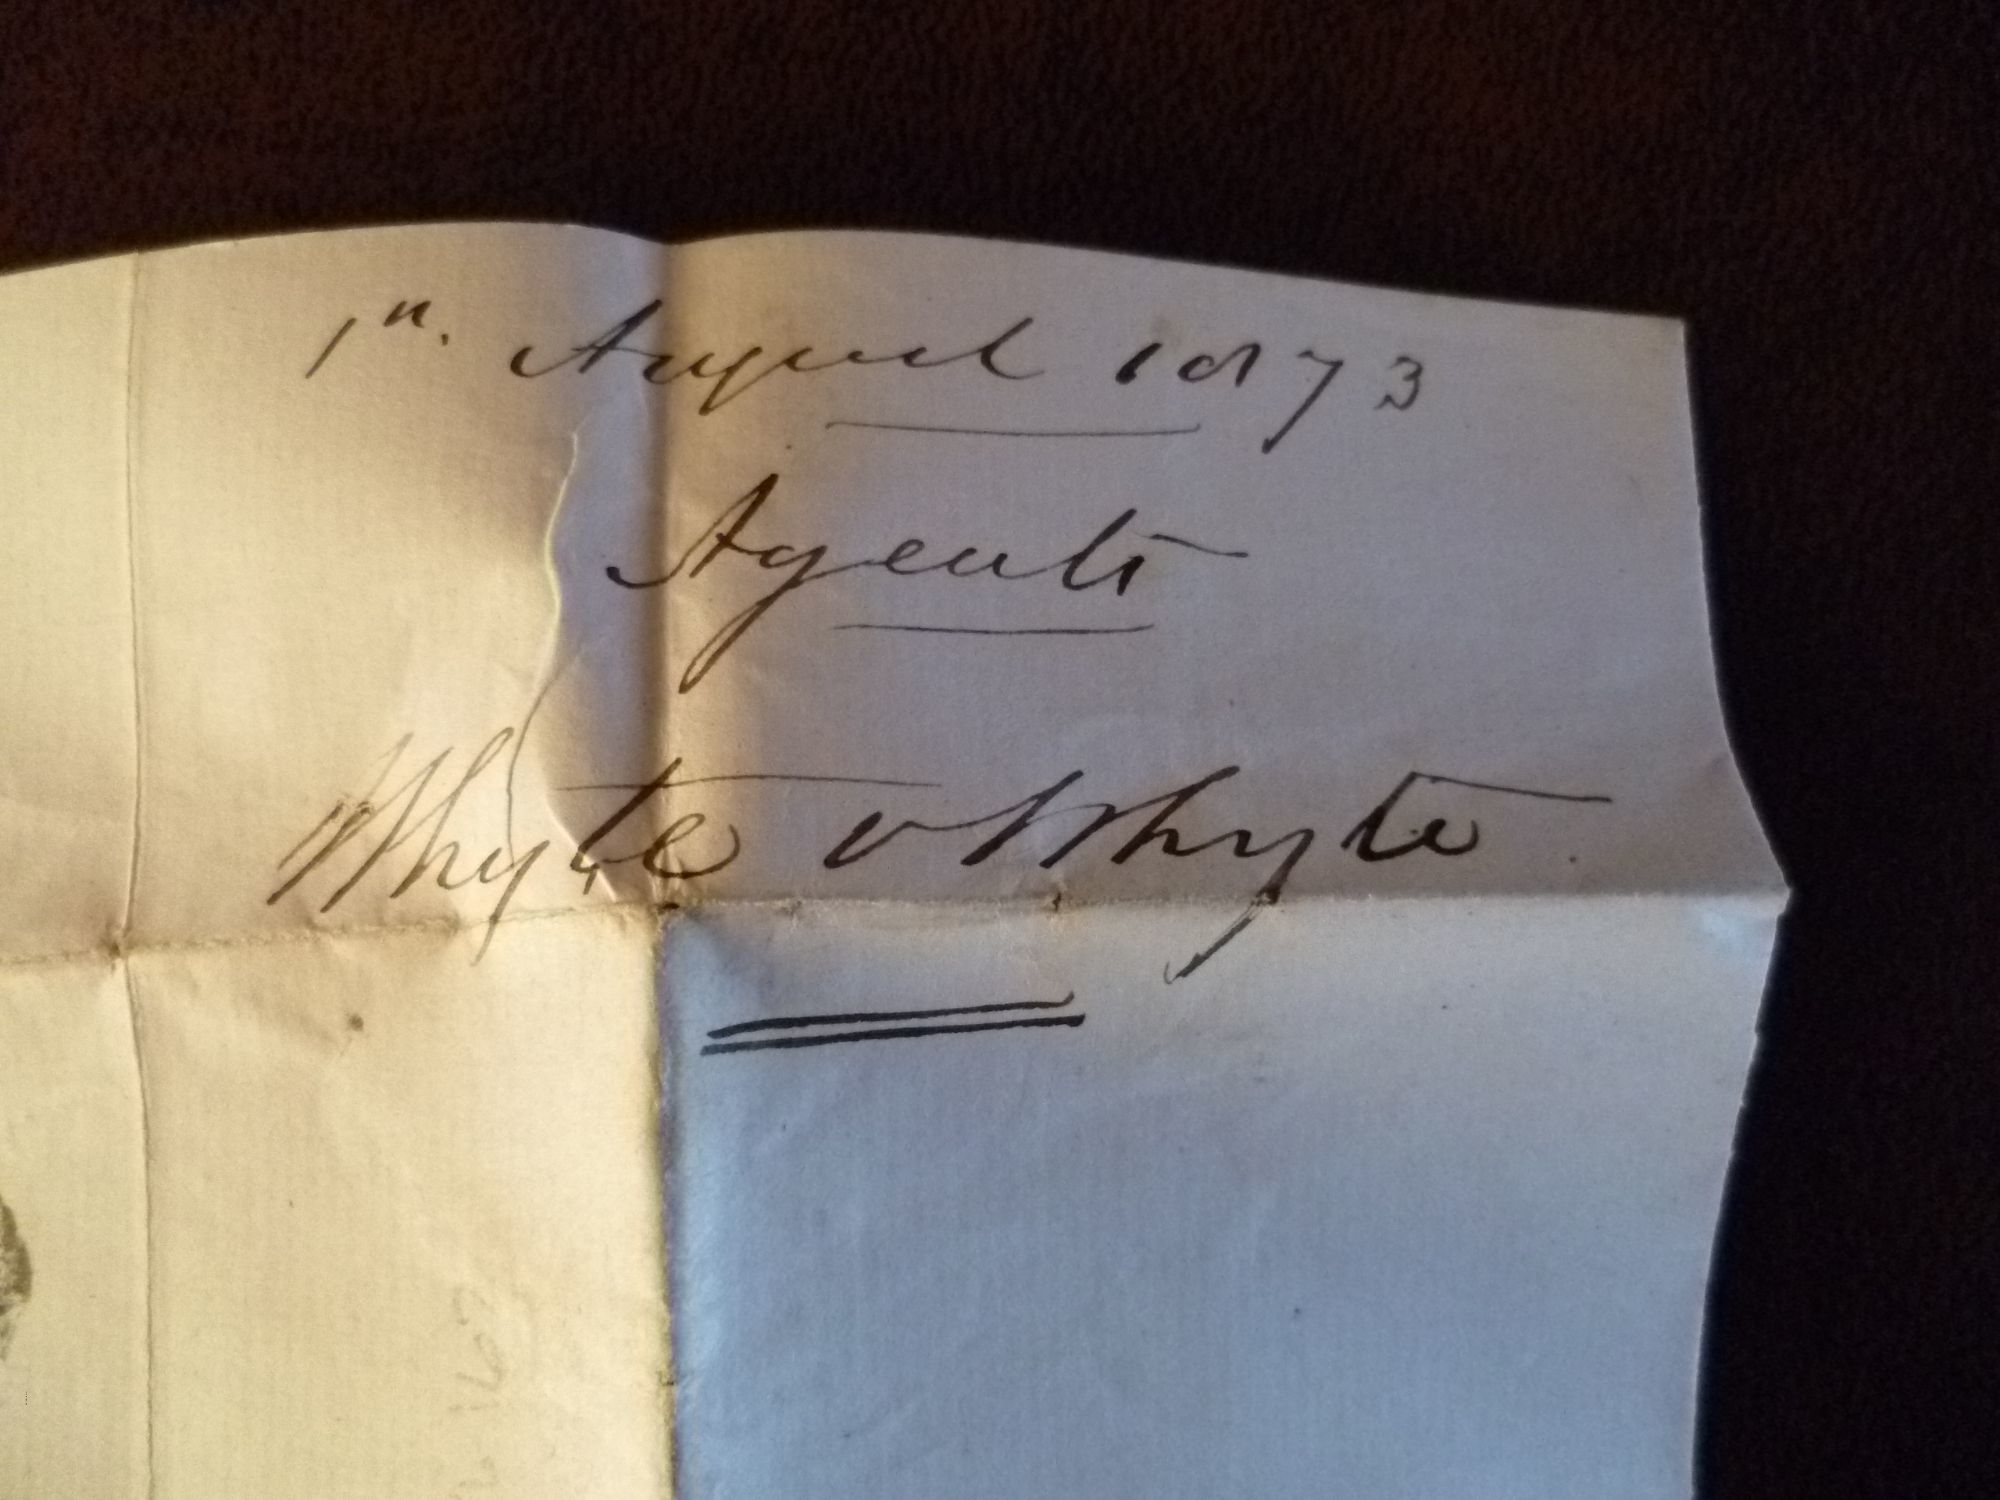 1st. August 1873
Agents
Whyte v Whyte